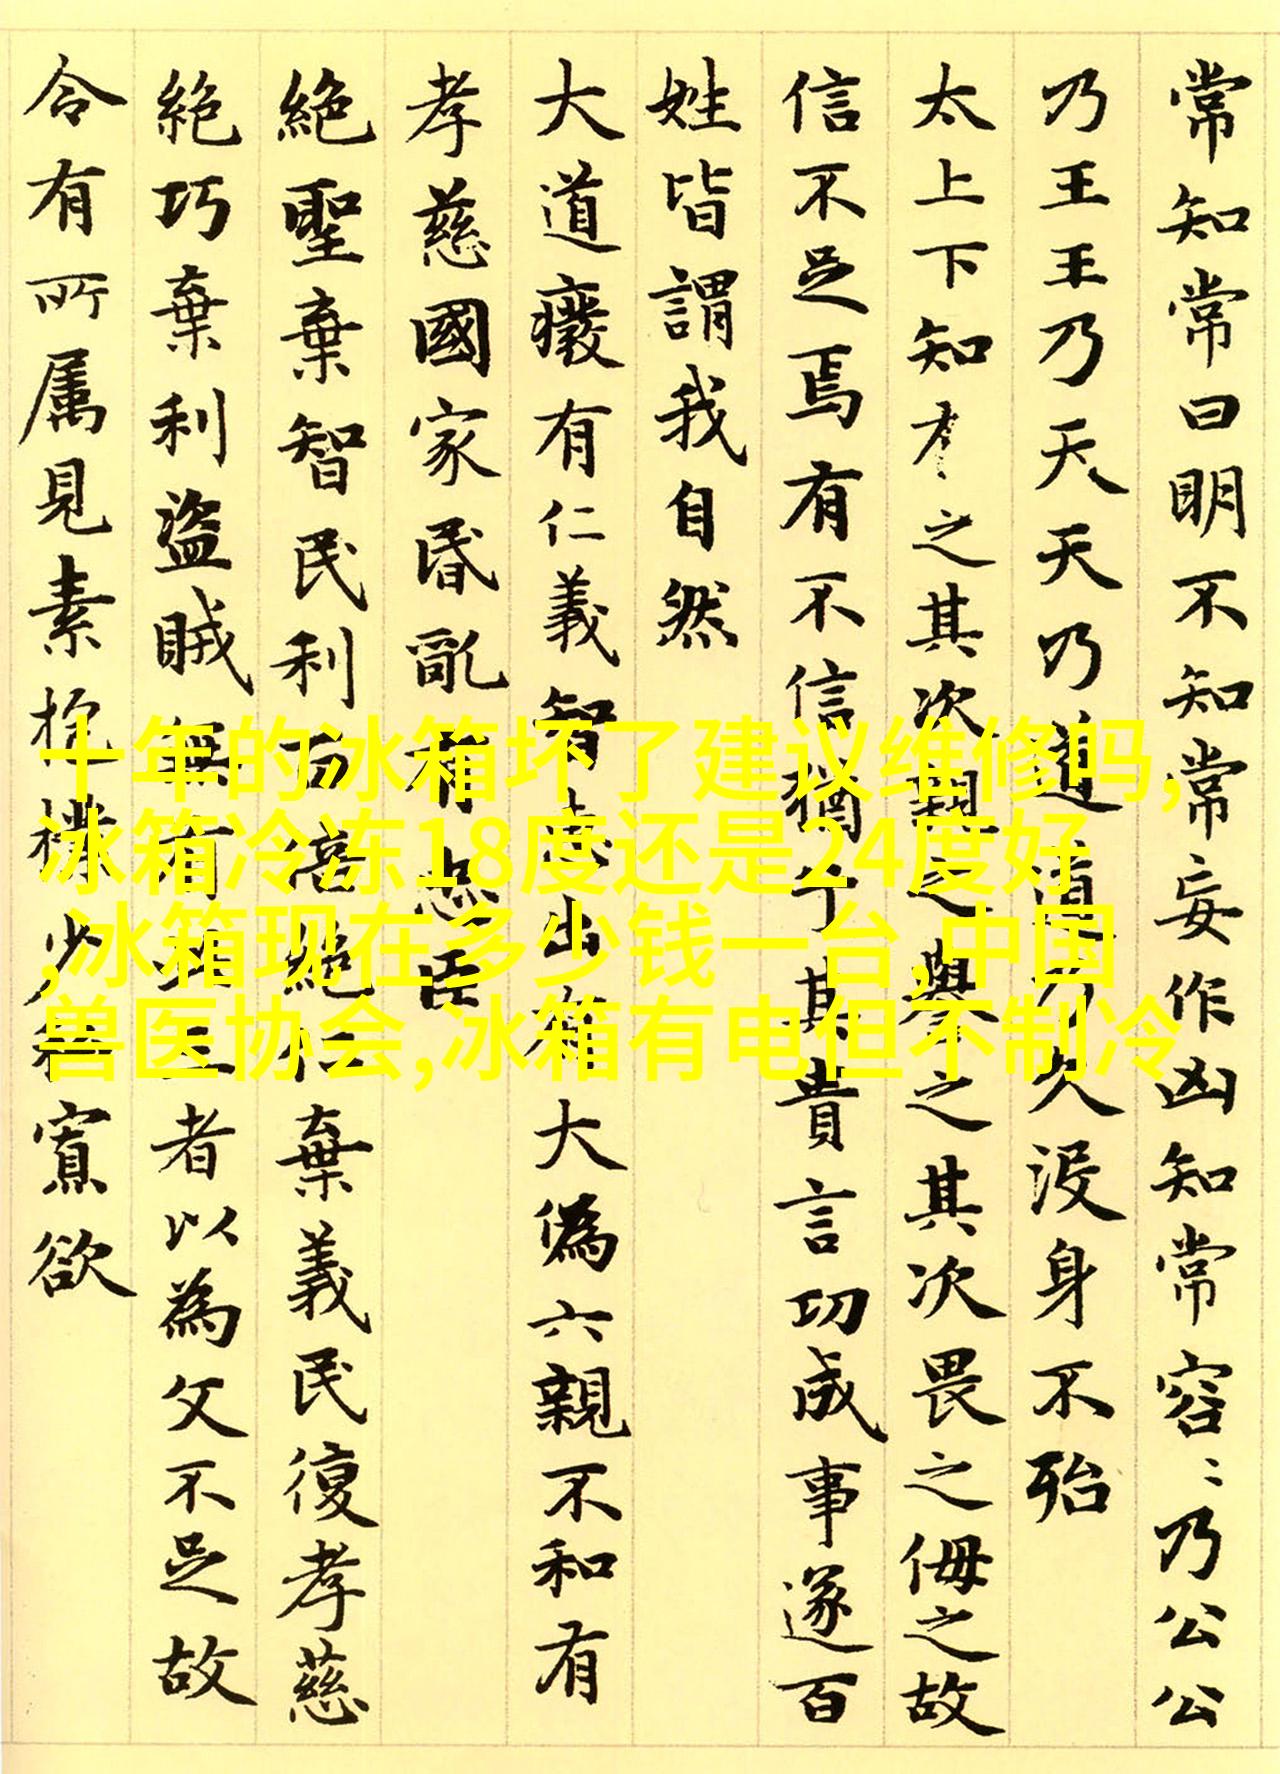 常知常曰明不知知常妄作凶知常容〻乃公公
乃王王乃天天乃道道乃久没身不殆
太上下知有之其次親之譽之其次畏之侮之故
信不足焉有不信猶兮其貴言功成事遂百
姓皆謂我自然
大道癈有仁義智恵出有大偽六親不和有
孝慈國家昏乱有忠臣
絶聖棄智民利百倍絶仁棄義民復孝慈
絶巧棄利盗賊無有此三者以為文不足故
令有所属見素抱樸少私寡欲
十年的冰箱坏了建议维修吗,
冰箱冷冻18度还是24度好
,冰箱现在多少钱一台,中国
兽医协会,冰箱有电但不制冷